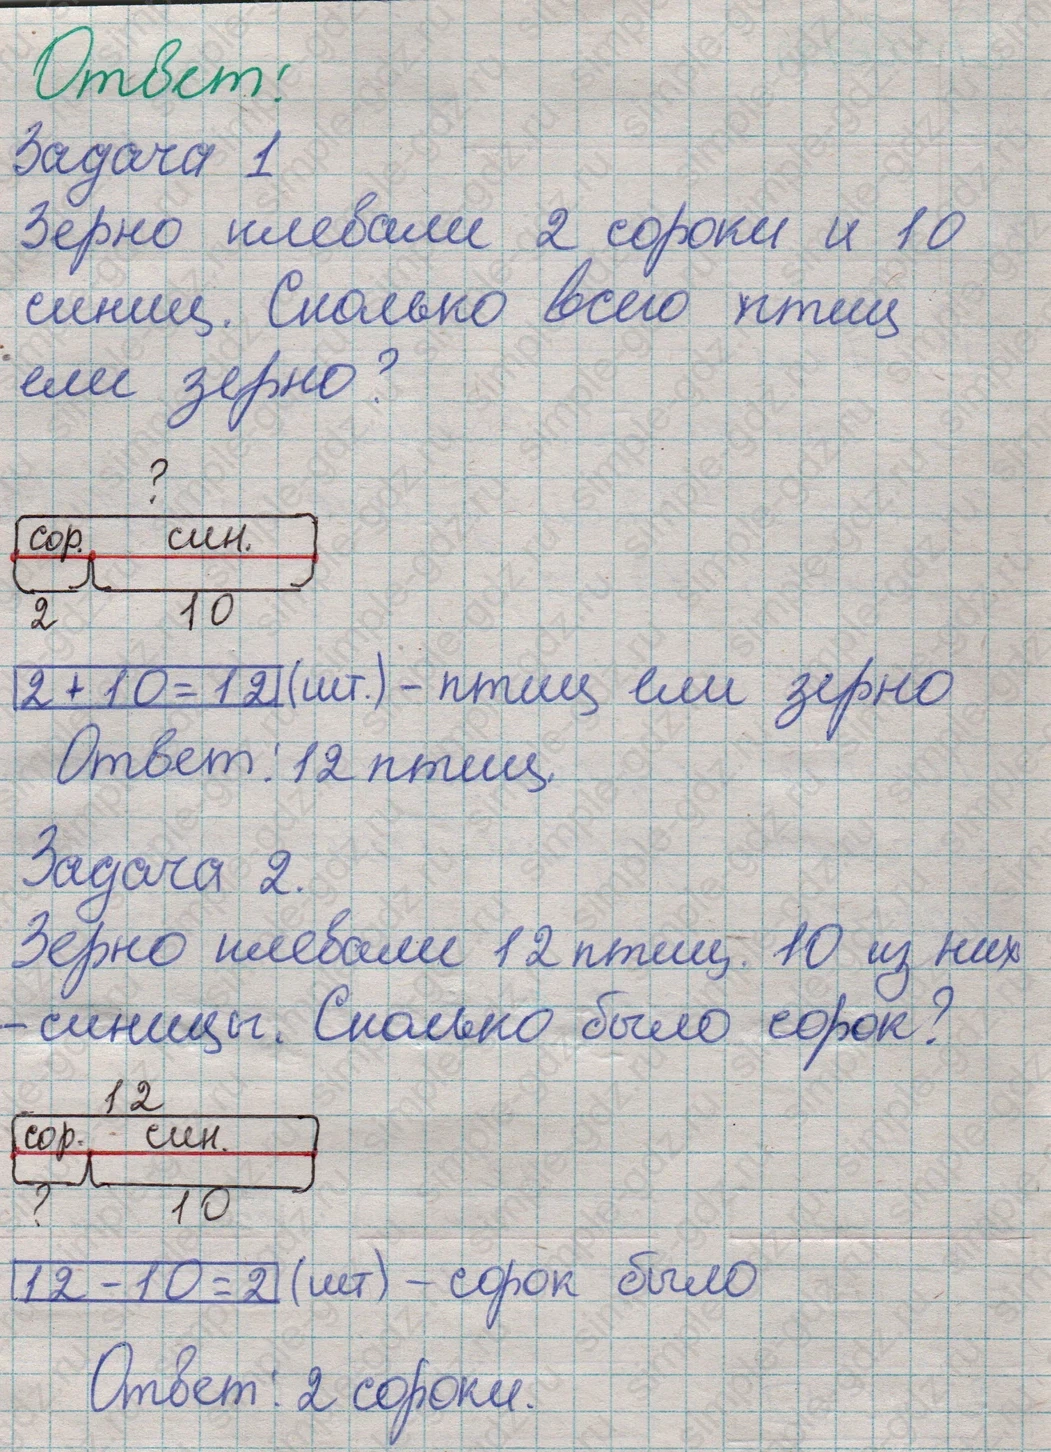 Ответ:
Задача 1
Зерно клевали 2 сороки и 10
синиц. Сколько всего птиц
ели зерно?
?
сор. син.
2 10
2 + 10 = 12 (шт.) – птиц ели зерно
Ответ: 12 птиц.
Задача 2.
Зерно клевали 12 птиц. 10 из них
– синицы. Сколько было сорок?
12
сор. син.
? 10
12 – 10 = 2 (шт) – сорок было
Ответ: 2 сороки.
simple-gdz.ru